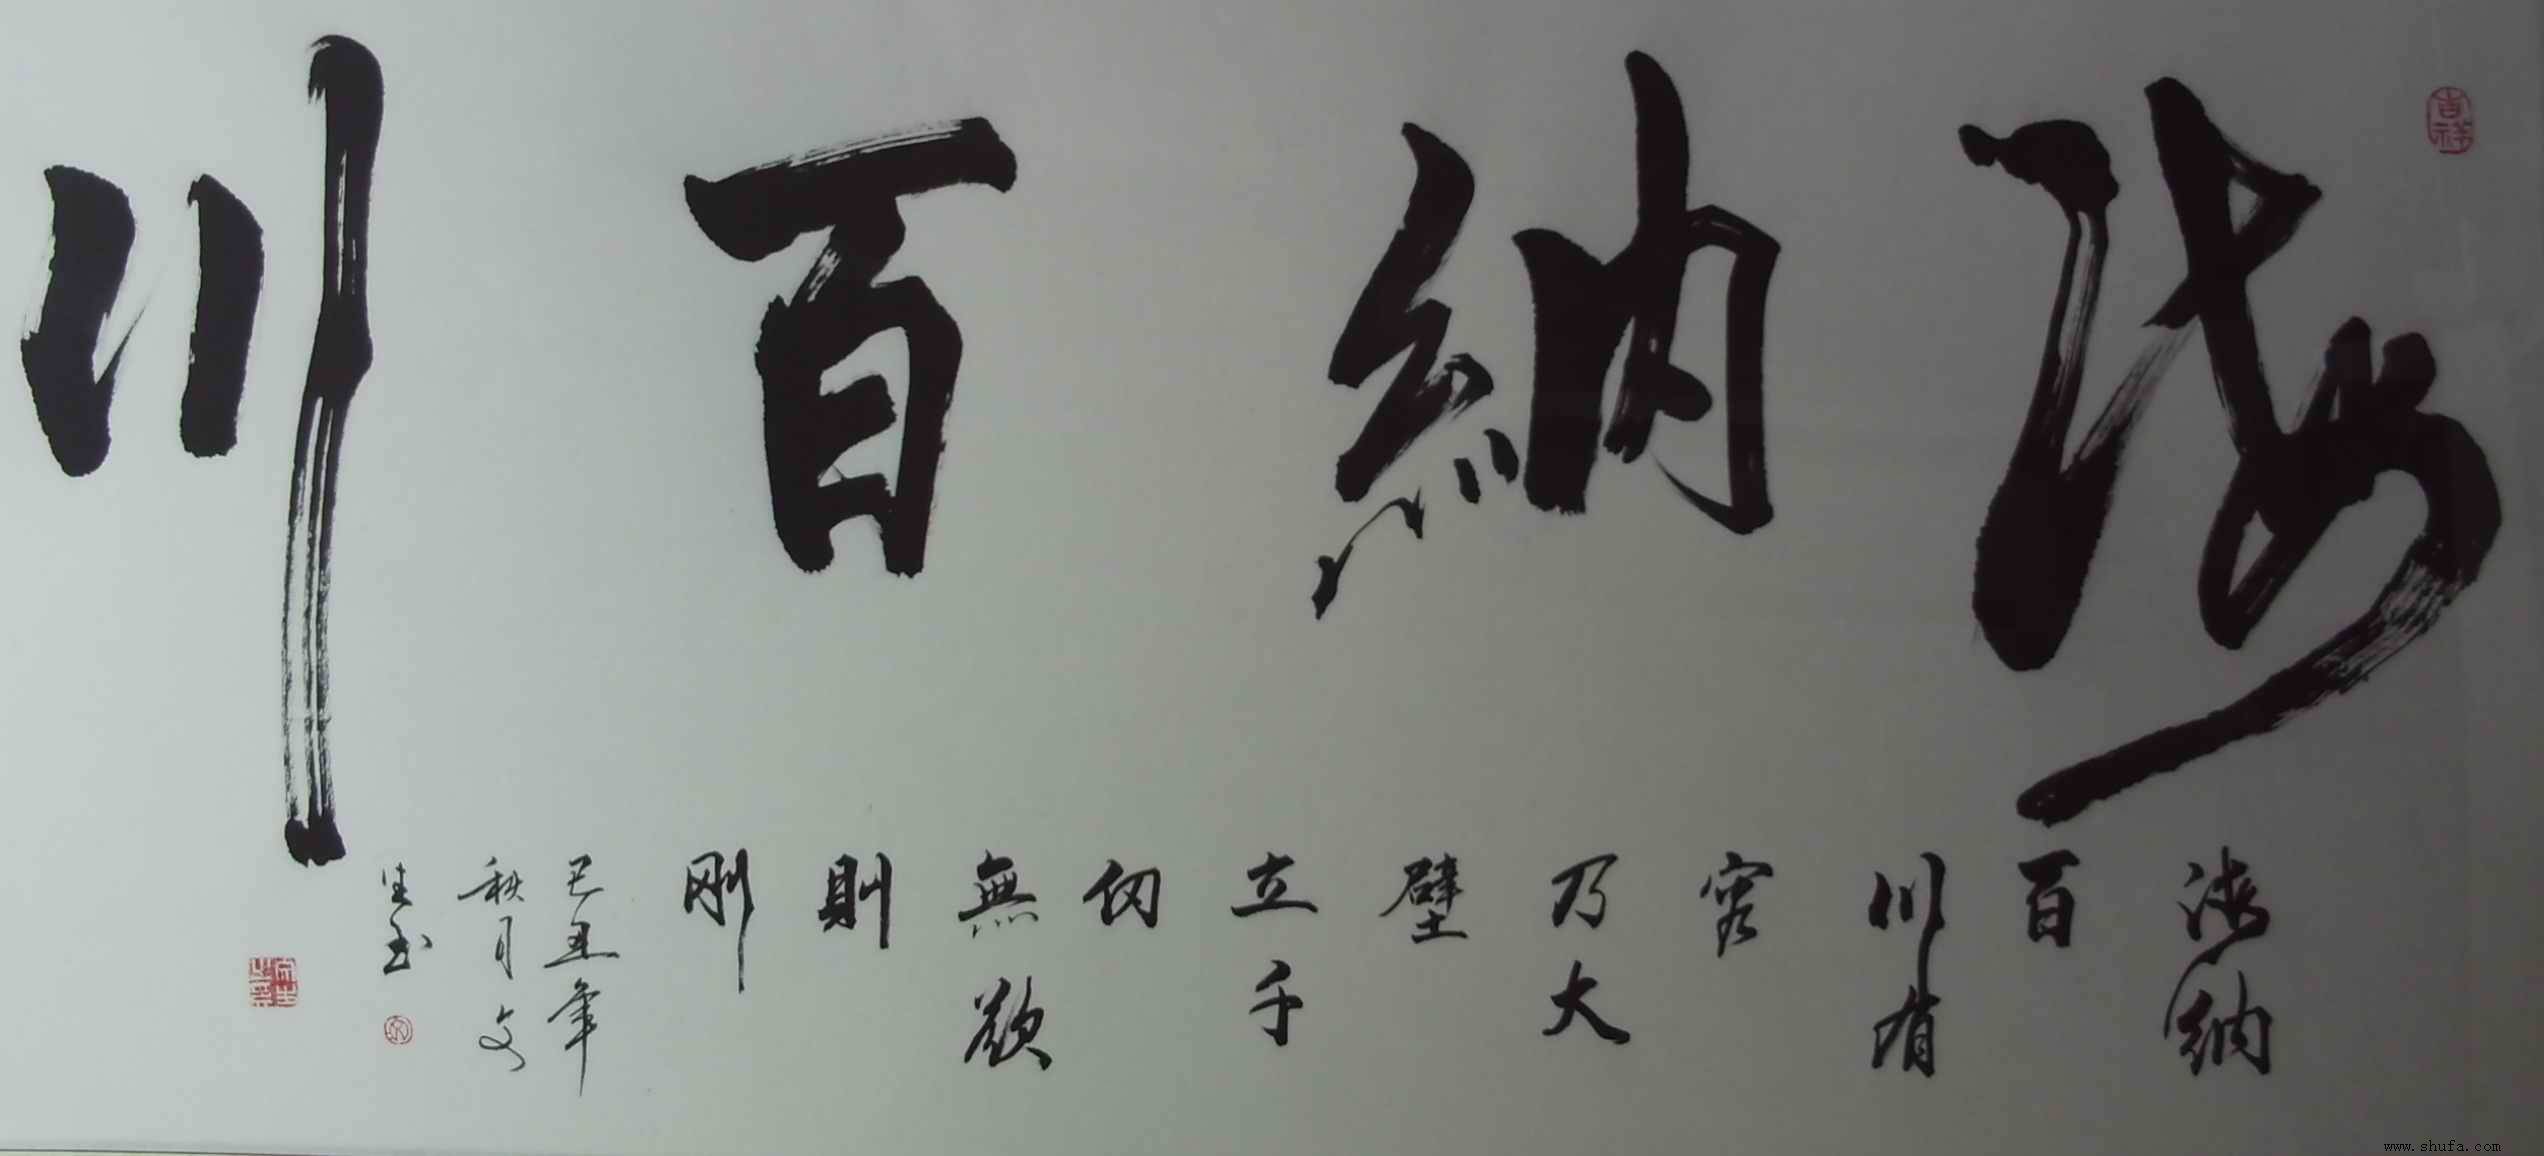 海納百川
海納
百
川有
容
乃大
壁
立千
仞
無欲
則
剛
己丑年
秋月文
生書
吉祥
www.shufa.com